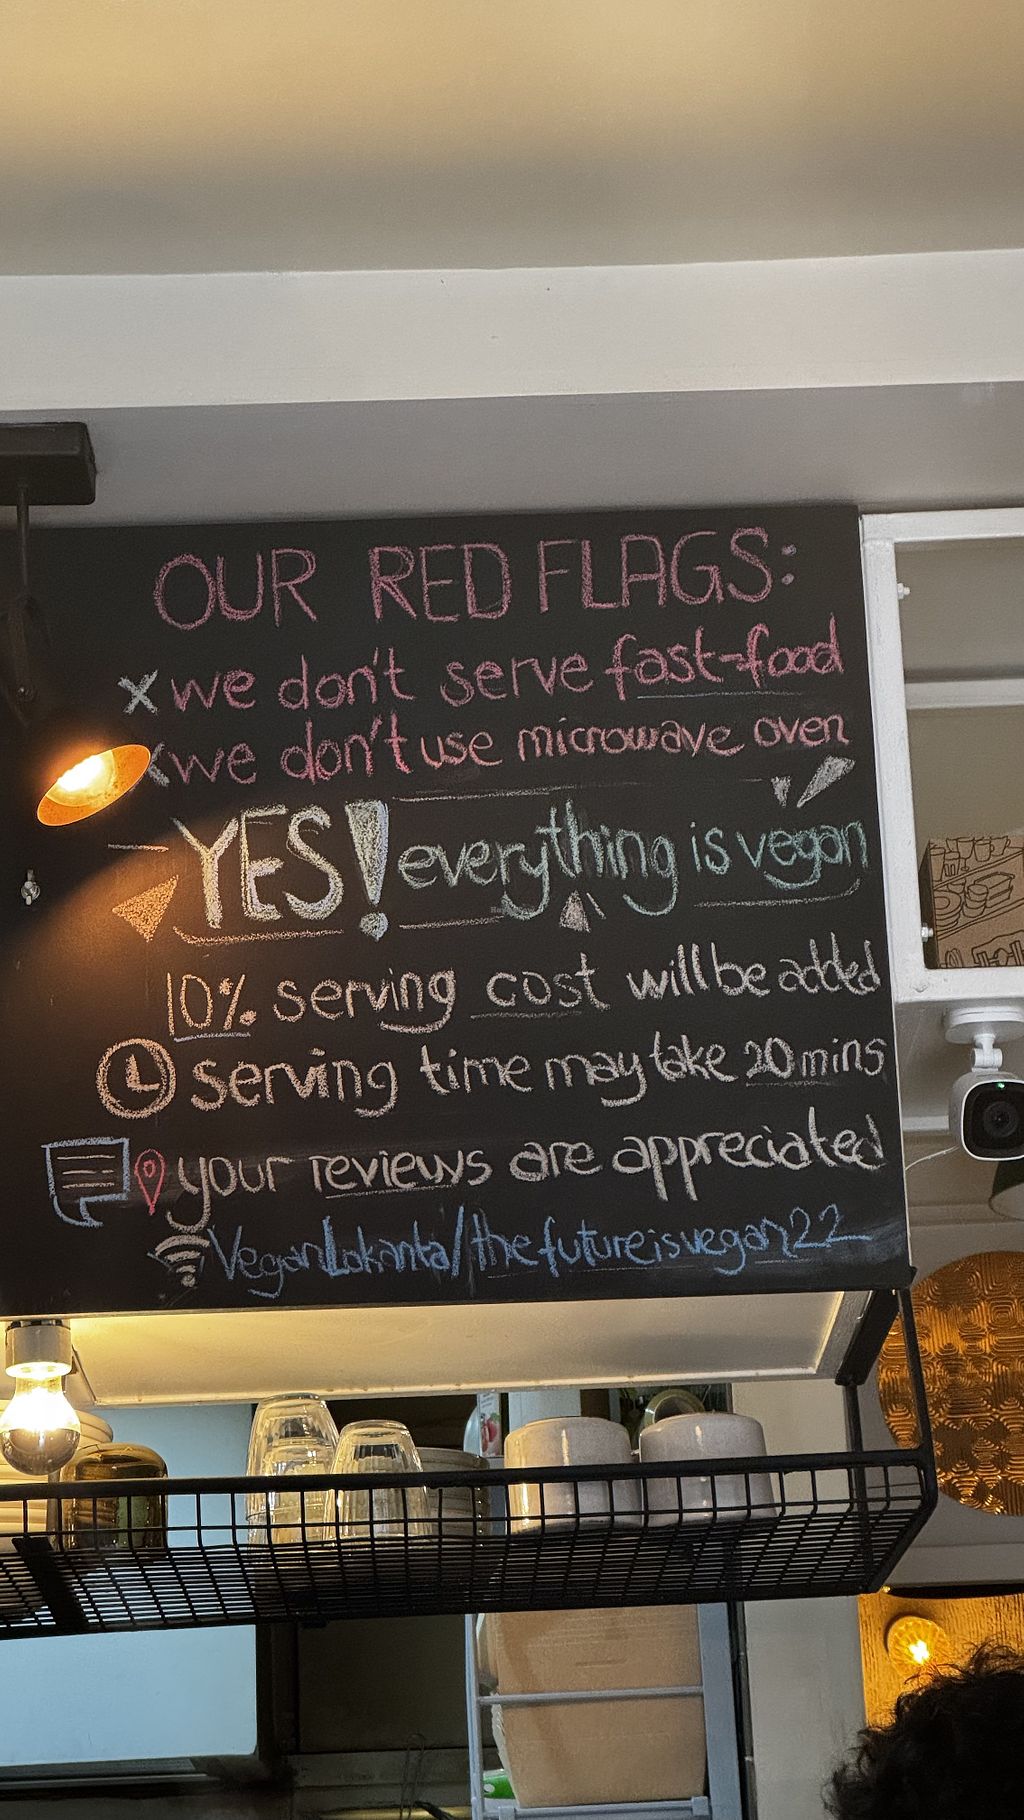 OUR RED FLAGS:
x we don't serve fast-food
x we don't use microwave oven
YES! everything is vegan
10% serving cost will be added
serving time may take 20 mins
your reviews are appreciated
VeganLokanta/thefutureisvegan22